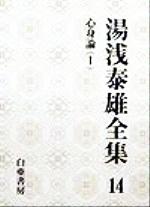 湯浅泰雄全集
14
心身論(Ⅰ)
白亜書房